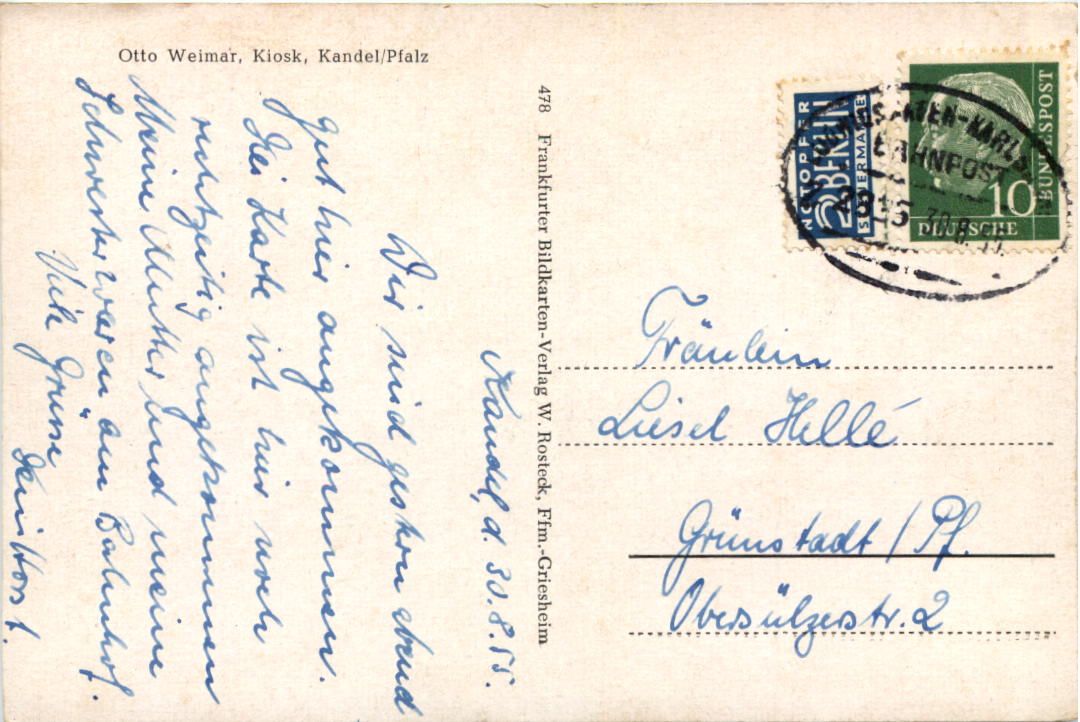 Otto Weimar, Kiosk, Kandel/Pfalz
Kandel, d. 30.8.55.
Wir sind gestern abend
gut hier angekommen.
Die Karte ist hier noch
rechtzeitig angekommen
Meine Mutter und meine
Schwester waren am Bahnhof.
Viele Grüsse
Dein Horst.
478 Frankfurter Bildkarten-Verlag W. Rosteck, Ffm.-Griesheim
NOTOPFER
2 BERLIN
STEUERMARKE
10
DEUTSCHE
BUNDESPOST
BAHNPOST
30.8.55.
Fräulein
Liesel Hellé
Grünstadt / Pf.
Obersülzerstr. 2